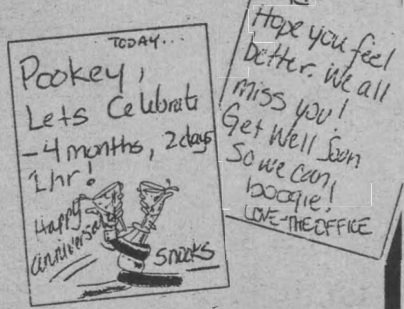 TODAY...
Pookey,
Lets Celebrate
-4 months, 2 days
1hr!
Happy
anniversary
Snooks
Hope you feel
better. We all
miss you!
Get Well Soon
So we can
boogie!
LOVE-THE OFFICE